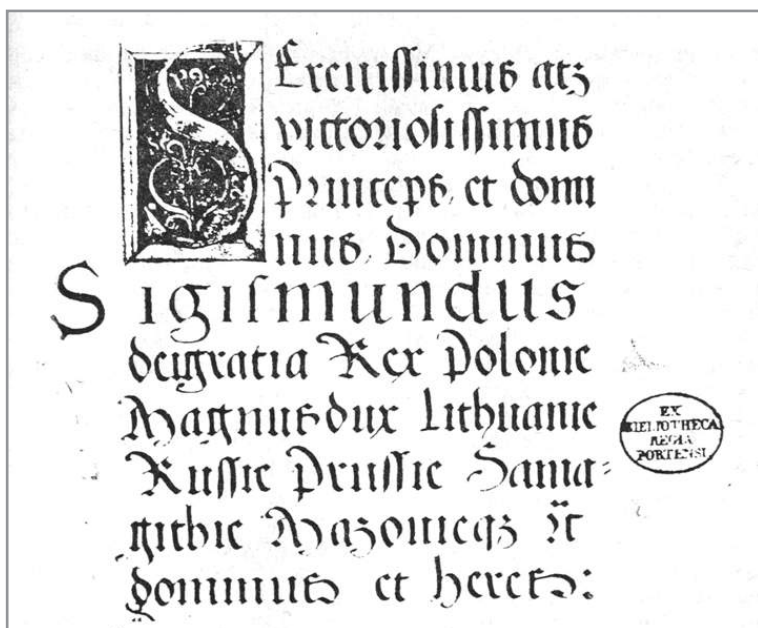 Serenissimus atqȝ
victoriosissimus
Princeps et domi
nus, Dominus
Sigismundus
deigratia Rex Polonie
Magnus dux Lithuanie
Russie Prussie Sama=
githie Mazovieqȝ ꝛc̃
dominus et heres:
EX
BIBLIOTHECA
REGIA
PORTENSI